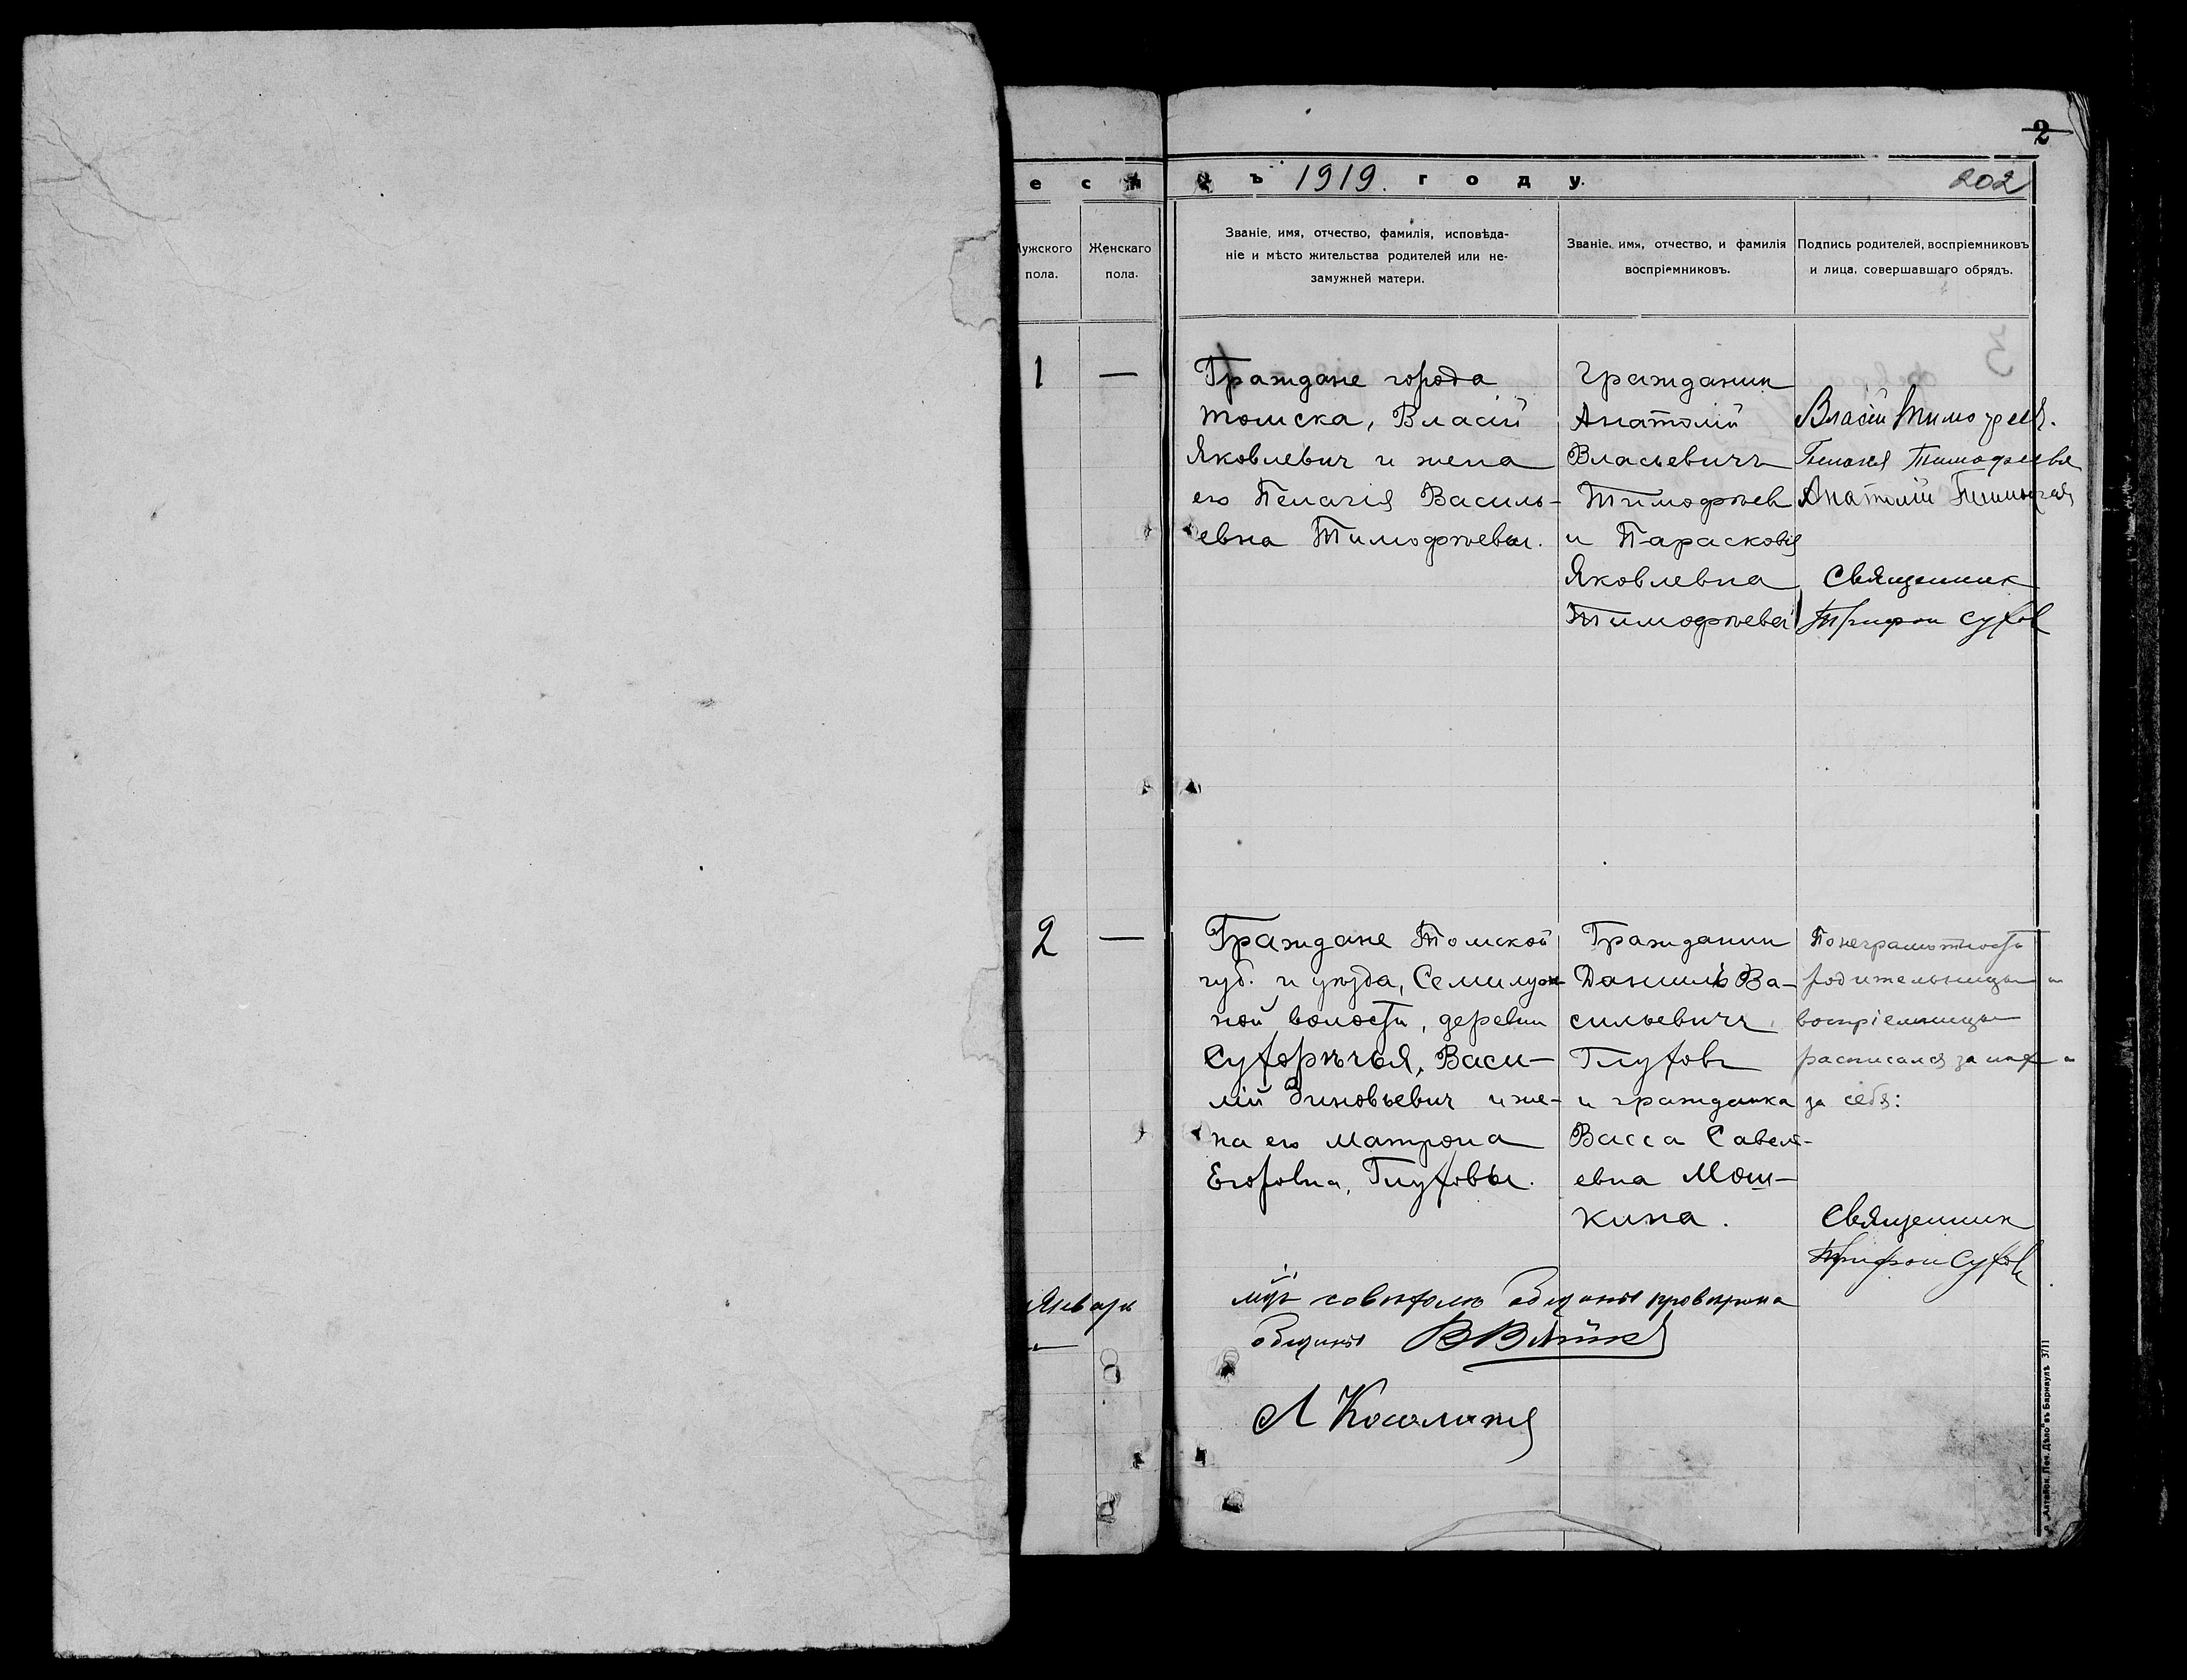 2
въ 1919. году.
202
Мужского пола.
Женскаго пола.
Званіе, имя, отчество, фамилія, исповѣда-
ніе и мѣсто жительства родителей или не-
замужней матери.
Званіе, имя, отчество, и фамилія
воспріемниковъ.
Подпись родителей, воспріемниковъ
и лица, совершавшаго обрядъ.
1
—
Граждане города
Томска, Власій
Яковлевич и жена
его Пелагія Василь-
евна Тимофѣевы.
Гражданин
Анатолій
Власьевичъ
Тимофѣев
и Парасковія
Яковлевна
Тимофѣева
Власій
Анатолій
Священник
Трифон Сухов
2
—
Граждане Томской
губ. и уѣзда, Семилуж-
ной волости, деревни
Сухорѣчья, Васи-
лій Зиновьевич и же-
на его Матрона
Егоровна, Глуховы.
Гражданин
Даниилъ Ва-
сильевичъ
Глуховъ
и гражданка
Васса Савель-
евна Мош-
кина.
По неграмотности
родительницы и
воспріемницы
расписался за них и
за себя:
Священник
Трифон Сухов
Январь
общины
общины
„Алтайск. Печ. Дѣло" въ Барнаулѣ 3711